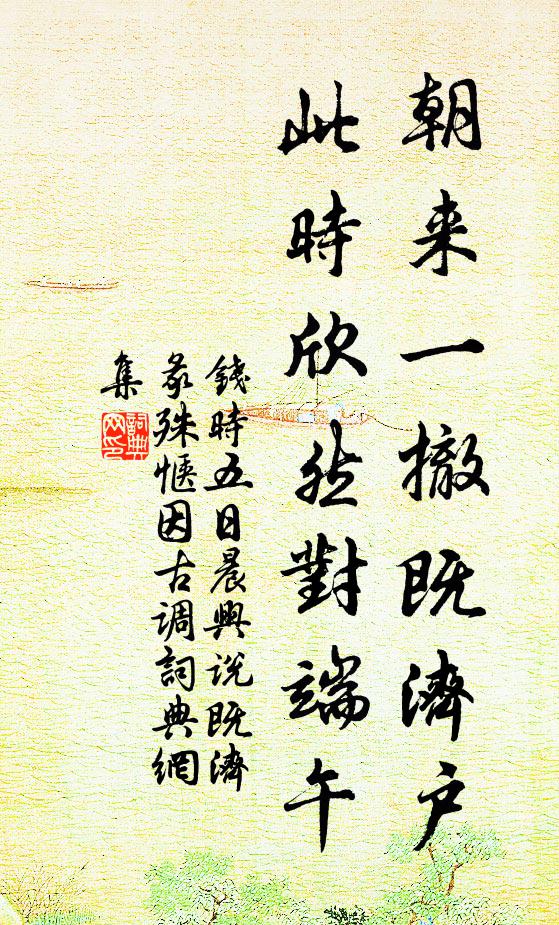 朝来一撤既濟户
此時欣然對端午
錢時五日晨興说既濟
彖殊惬因古调詞典網
集
詞典網印